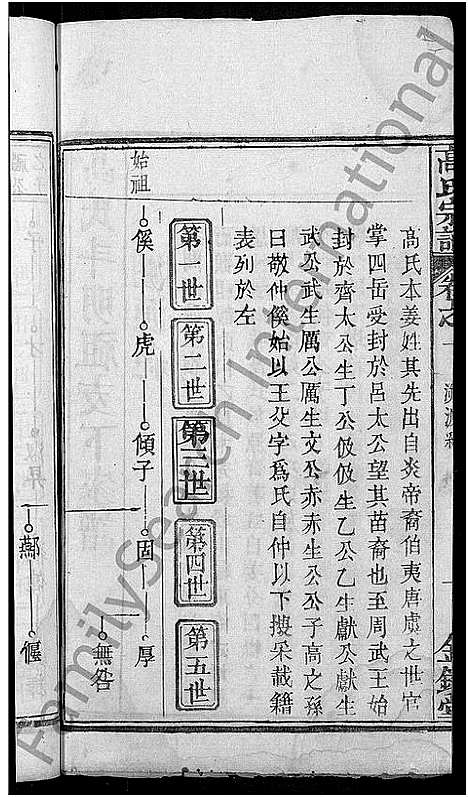 高氏宗譜
卷之一
金錢堂
高氏本姜姓其先出自炎帝裔伯夷唐虞之世官
掌四岳受封於呂太公望其苗裔也至周武王始
封於齊太公生丁公伋伋生乙公乙生獻公獻生
武公武生厲公厲生文公赤赤生公公子高之孫
曰敬仲傒始以王父字爲氏自仲以下搜采載籍
表列於左
第一世
第二世
第三世
第四世
第五世
始祖
傒 虎 傾子 固 厚
無咎
鄰 偃
FamilySearch International